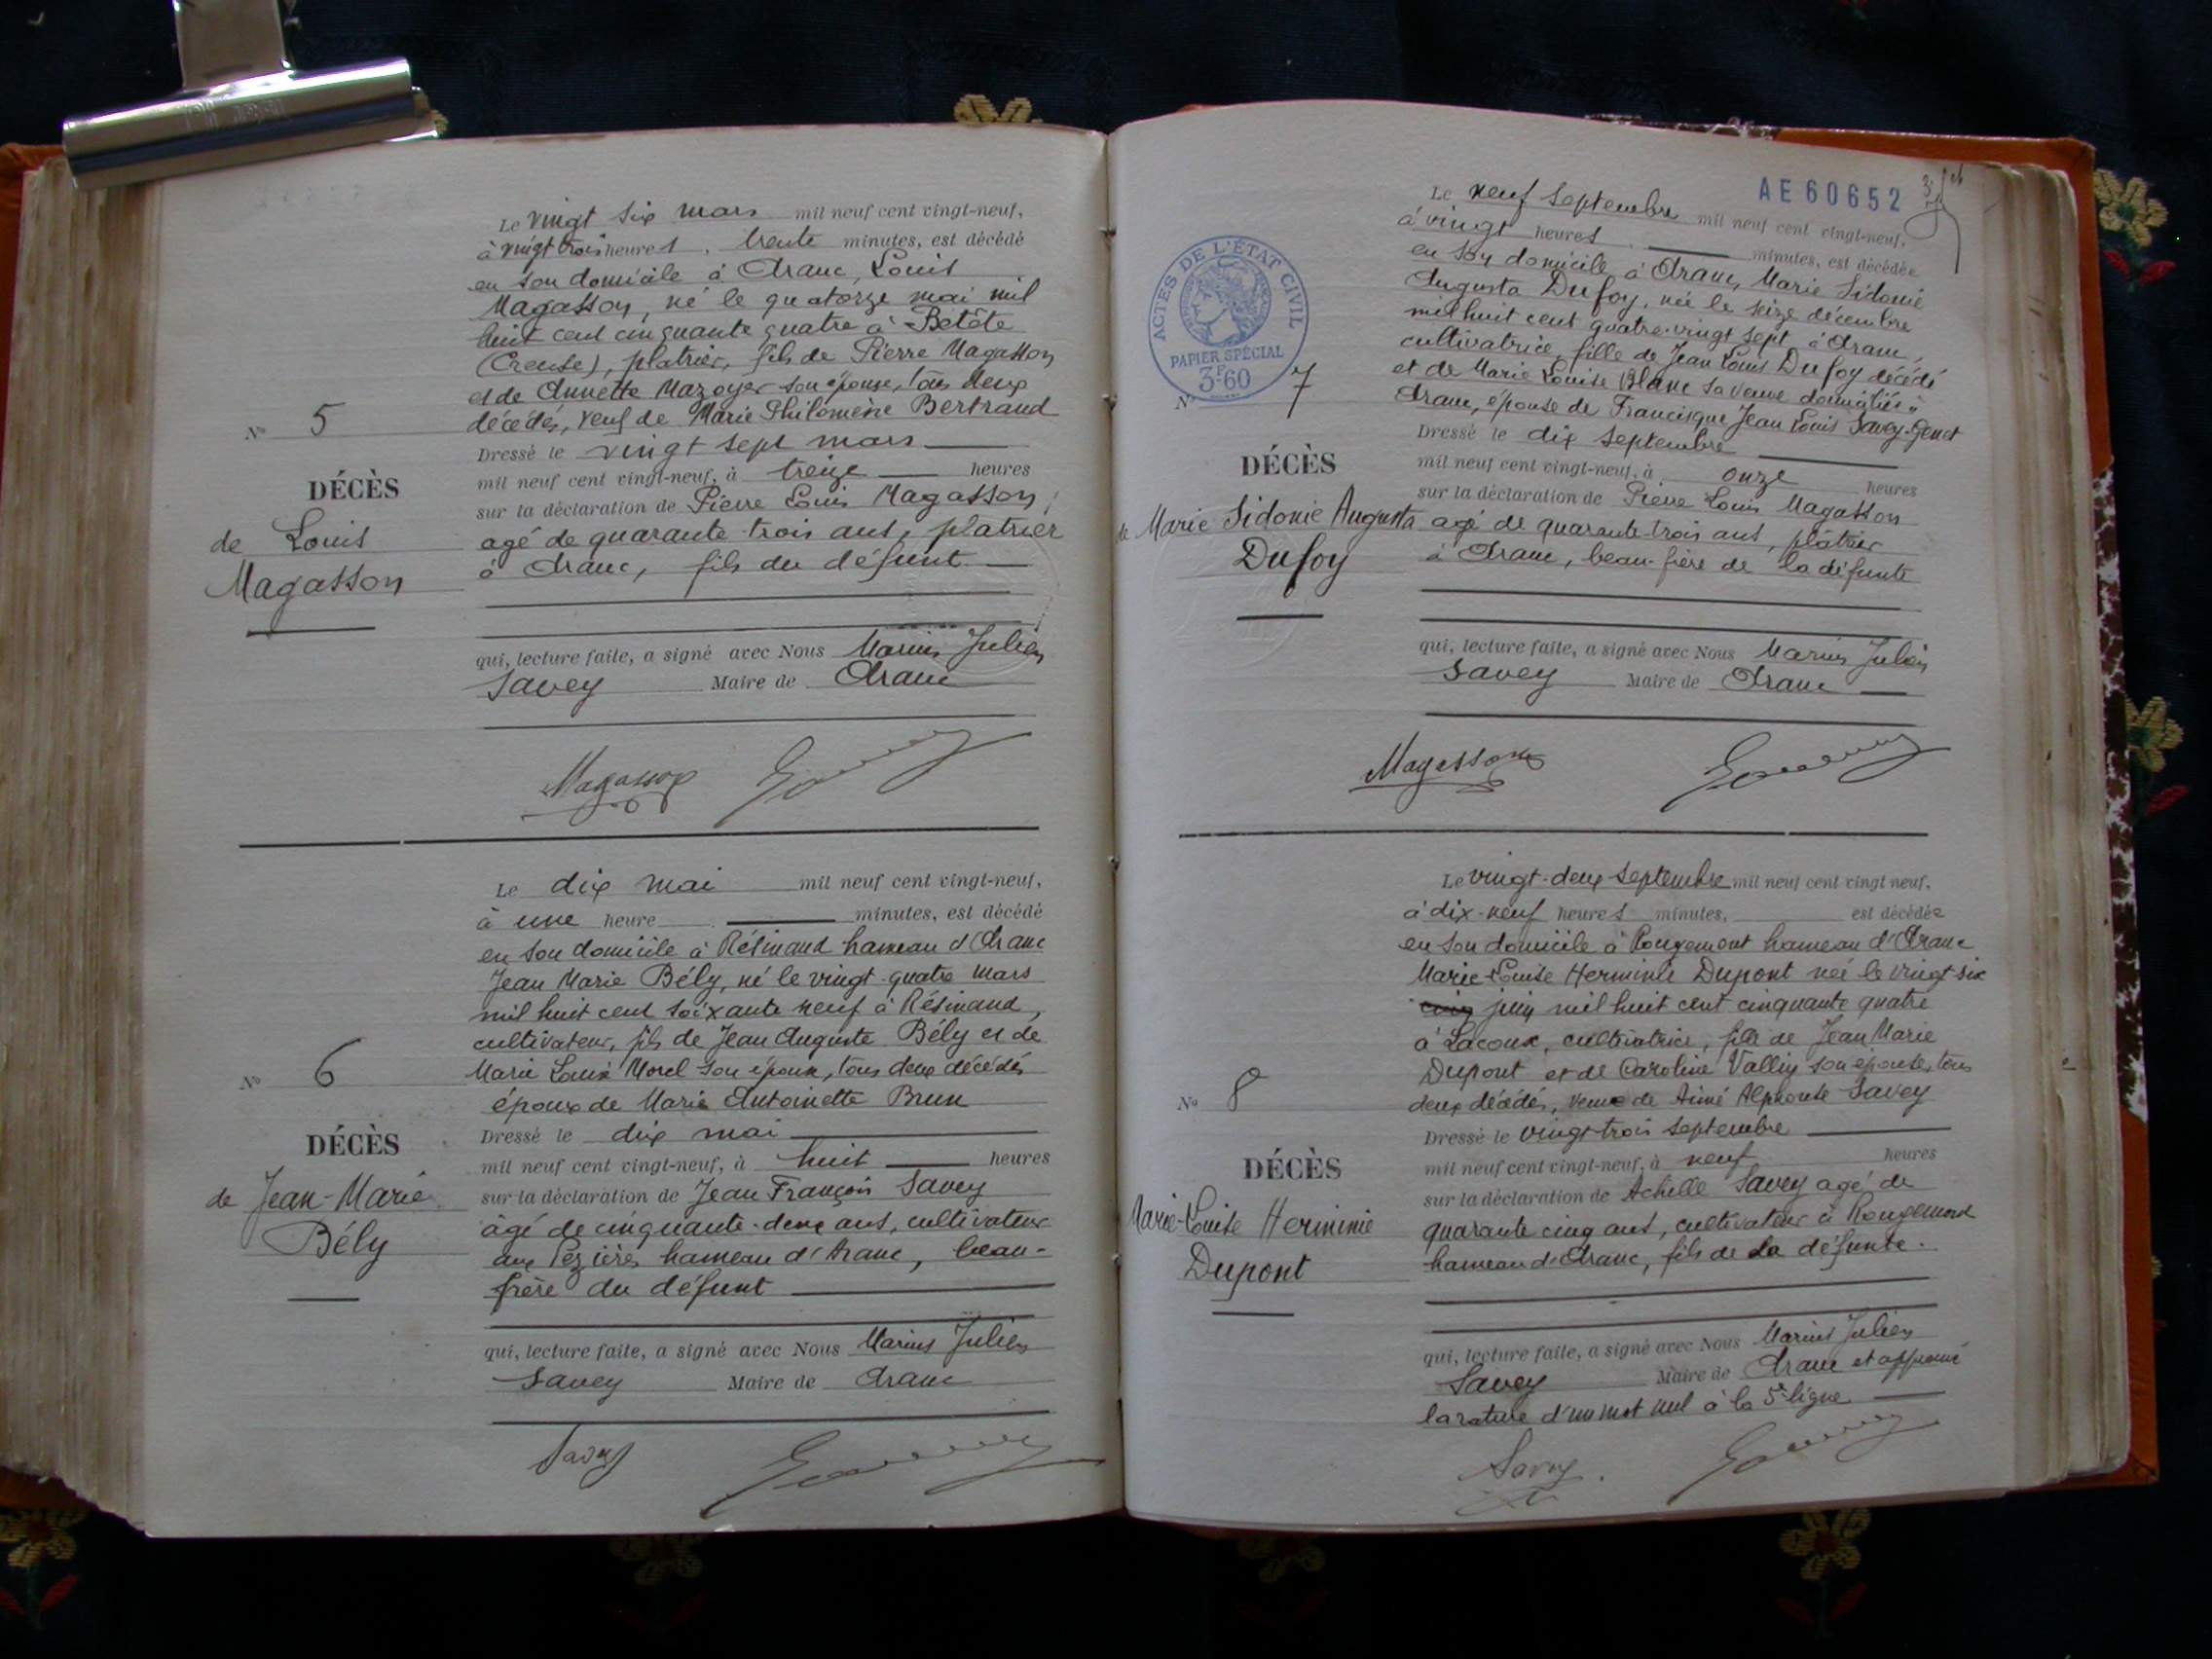 Le vingt six mars mil neuf cent vingt-neuf,
à vingt trois heures, trente minutes, est décédé
en son domicile à Aranc, Louis
Magasson, né le quatorze mai mil
huit cent cinquante quatre à Betête
(Creuse), platrier, fils de Pierre Magasson
et de Annette Mazoyer son épouse, tous deux
décédés, veuf de Marie Philomène Bertrand
Nº 5
Dressé le vingt sept mars
mil neuf cent vingt-neuf, à treize heures
DÉCÈS
sur la déclaration de Pierre Louis Magasson,
de Louis
agé de quarante-trois ans, platrier
Magasson
à Aranc, fils du défunt
qui, lecture faite, a signé avec Nous Marius Julien
Savey Maire de Aranc
Magasson
Le dix mai mil neuf cent vingt-neuf,
à une heure minutes, est décédé
en son domicile à Résinand hameau d'Aranc
Jean Marie Bély, né le vingt-quatre mars
mil huit cent soixante neuf à Résinand,
cultivateur, fils de Jean Auguste Bély et de
Marie Louise Morel son épouse, tous deux décédés
Nº 6
époux de Marie Antoinette Brun
Dressé le dix mai
DÉCÈS
mil neuf cent vingt-neuf, à huit heures
de Jean-Marie
sur la déclaration de Jean François Savey
Bély
âgé de cinquante-deux ans, cultivateur
aux Pézières hameau d'Aranc, beau-
frère du défunt
qui, lecture faite, a signé avec Nous Marius Julien
Savey Maire de Aranc
Savey
AE 60652
Le neuf Septembre mil neuf cent vingt-neuf,
à vingt heures minutes, est décédée
en son domicile à Aranc, Marie Sidonie
Augusta Dufoy, née le seize décembre
mil huit cent quatre-vingt sept à Aranc,
cultivatrice, fille de Jean Louis Dufoy décédé
et de Marie Louise Blanc sa veuve domiciliée à
Aranc, épouse de Francisque Jean Louis Savey-Genet
ACTES DE L'ÉTAT CIVIL
PAPIER SPÉCIAL
3F60
Nº 7
Dressé le dix Septembre
DÉCÈS
mil neuf cent vingt-neuf, à onze heures
sur la déclaration de Pierre Louis Magasson
de Marie Sidonie Augusta
agé de quarante-trois ans, platrier
Dufoy
à Aranc, beau-frère de la défunte
qui, lecture faite, a signé avec Nous Marius Julien
Savey Maire de Aranc
Magasson
Le vingt-deux Septembre mil neuf cent vingt neuf,
à dix-neuf heures minutes, est décédée
en son domicile à Rougemont hameau d'Aranc
Marie-Louise Herminie Dupont née le vingt-six
cinq juin mil huit cent cinquante quatre
à Lacoux, cultivatrice, fille de Jean Marie
Dupont et de Caroline Vallin son épouse, tous
deux décédés, veuve de Aimé Alphonse Savey
Nº 8
Dressé le vingt-trois Septembre
DÉCÈS
mil neuf cent vingt-neuf, à neuf heures
sur la déclaration de Achille Savey agé de
Marie-Louise Herminie
quarante cinq ans, cultivateur à Rougemont
Dupont
hameau d'Aranc, fils de la défunte.
qui, lecture faite, a signé avec Nous Marius Julien
Savey Maire de Aranc et approuvé
la rature d'un mot nul à la 5e ligne
Savey